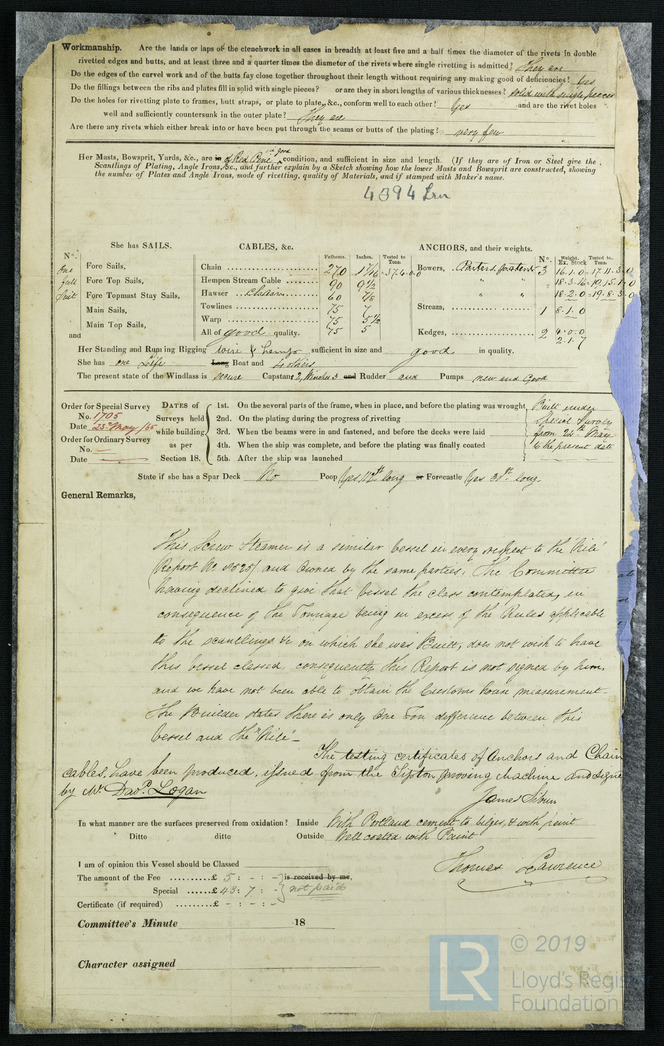 Workmanship. Are the lands or laps of the clenchwork in all cases in breadth at least five and a half times the diameter of the rivets in double
rivetted edges and butts, and at least three and a quarter times the diameter of the rivets where single rivetting is admitted? They are
Do the edges of the carvel work and of the butts fay close together throughout their length without requiring any making good of deficiencies? Yes
Do the fillings between the ribs and plates fill in solid with single pieces? or are they in short lengths of various thicknesses? solid with single pieces
Do the holes for rivetting plate to frames, butt straps, or plate to plate, &c., conform well to each other? Yes and are the rivet holes
well and sufficiently countersunk in the outer plate? They are
Are there any rivets which either break into or have been put through the seams or butts of the plating? very few
Her Masts, Bowsprit, Yards, &c., are in of Red Pine in good condition, and sufficient in size and length. (If they are of Iron or Steel give the
Scantlings of Plating, Angle Irons, &c., and further explain by a Sketch showing how the lower Masts and Bowsprit are constructed, showing
the number of Plates and Angle Irons, mode of rivetting, quality of Materials, and if stamped with Maker's name.
4394 Irn
She has SAILS. CABLES, &c. ANCHORS, and their weights.
N°. Fathoms. Inches. Tested to Tons. No. Weight. Ex. Stock Tested to Tons.
One Fore Sails, Chain 270 1 11/16 37.4.0.0 Bowers, Porters patent 3 16.1.0 17.11.3.0
full Fore Top Sails, Hempen Stream Cable 90 9 1/2 " " 18.3.16 19.15.1.0
suit Fore Topmast Stay Sails, Hawser Chain 60 7/8 " " 18.2.0 19.8.3.0
Main Sails, Towlines 75 7 Stream, 1 8.1.0
Main Top Sails, Warp 75 5 1/2
and All of good quality. 75 5 Kedges, 2 4.0.0
2.1.7
Her Standing and Running Rigging wire & hemp sufficient in size and good in quality.
She has one Life Long Boat and 4 others
The present state of the Windlass is secure Capstan 2, Winches 3 and Rudder and Pumps new and Good
Order for Special Survey
No. 1705
Date 23rd May /65
Order for Ordinary Survey
No. —
Date —
DATES of
Surveys held
while building
as per
Section 18.
1st. On the several parts of the frame, when in place, and before the plating was wrought
2nd. On the plating during the progress of rivetting
3rd. When the beams were in and fastened, and before the decks were laid
4th. When the ship was complete, and before the plating was finally coated
5th. After the ship was launched
Built under
special Survey
from 24th May
to the present date
State if she has a Spar Deck No Poop Yes 112ft long or Forecastle Yes 31ft long.
General Remarks,
This Screw Steamer is a similar vessel in every respect to the "Nile"
(Report No and owned by the same parties. The Committee
having declined to give that vessel the class contemplated, in
consequence of the Tonnage being in excess of the Rules applicable
to the scantlings &c on which she was Built, does not wish to have
this vessel classed, consequently this Report is not signed by him,
and we have not been able to obtain the Customs house measurement.
The Builder states there is only One Ton difference between this
vessel and the "Nile" –
The testing certificates of Anchors and Chain
cables, have been produced, issued from the Tipton proving Machine and signed
by Mr. Davd. Logan
James
In what manner are the surfaces preserved from oxidation? Inside With Portland cement to bilges, & with paint
Ditto ditto Outside Well coated with Paint
I am of opinion this Vessel should be Classed
Thomas Lawrence
The amount of the Fee £ 5 : - : - is received by me,
Special £ 43 : 7 : - not paid
Certificate (if required) £ - : - : -
Committee's Minute 18
Character assigned
LR © 2019
Lloyd's Register
Foundation